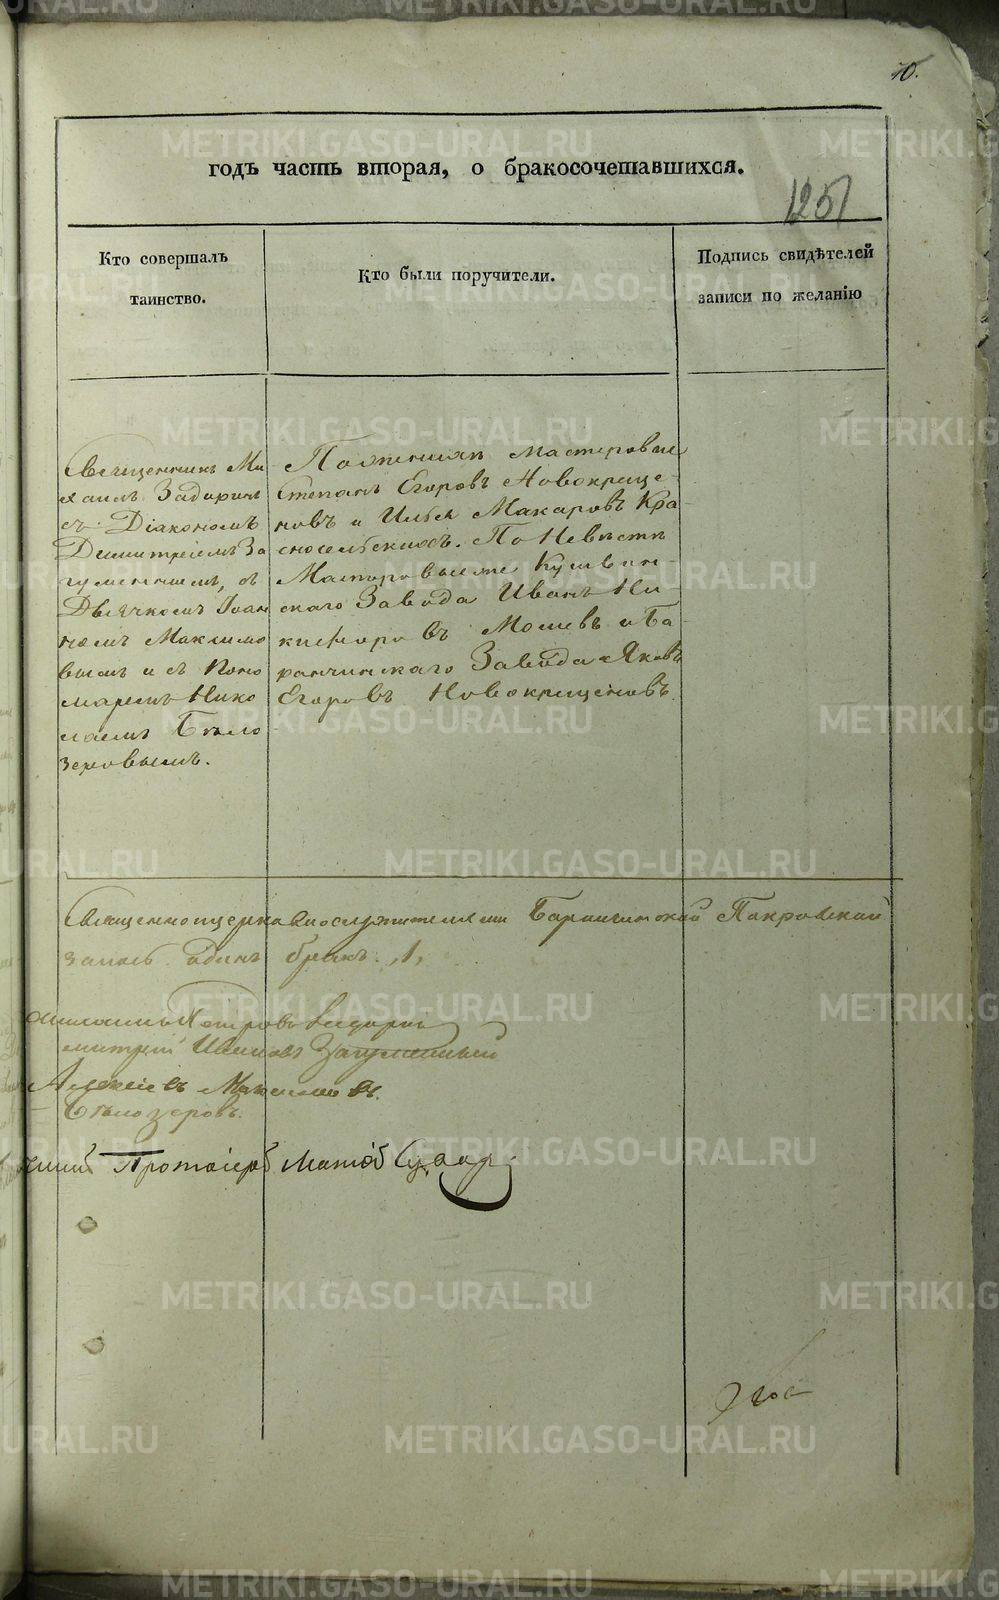 10.
годъ часть вторая, о бракосочетавшихся.
125
Кто совершалъ
таинство.
Кто были поручители.
Подпись свидѣтелей
записи по желанію
Священникъ Ми
хаилъ Задоринъ
съ Діакономъ
Димитріемъ За
гуменнымъ, съ
Дьячкомъ Іоан
номъ Максимо
вымъ и съ Поно
маремъ Нико
лаемъ Бѣло
зеровымъ.
По Женихѣ мастеровые
Степанъ Егоровъ Новокреще-
новъ и Илья Макаровъ Кра-
сносельскихъ. По Невѣстѣ
Мастеровые же Кушвин-
скаго Завода Иванъ Ни-
кифоровъ Мошевъ и Ба
ранчинскаго Завода Яковъ
Егоровъ Новокрещеновъ.
Священноцерковнослужителями Баранчинской Покровской
одинъ бракъ. 1,
Петровъ
митрій Ивановъ Загуменный
Алексіевъ Максимовъ.
Бѣлозеровъ.
чинный Протоіерей
METRIKI.GASO-URAL.RU